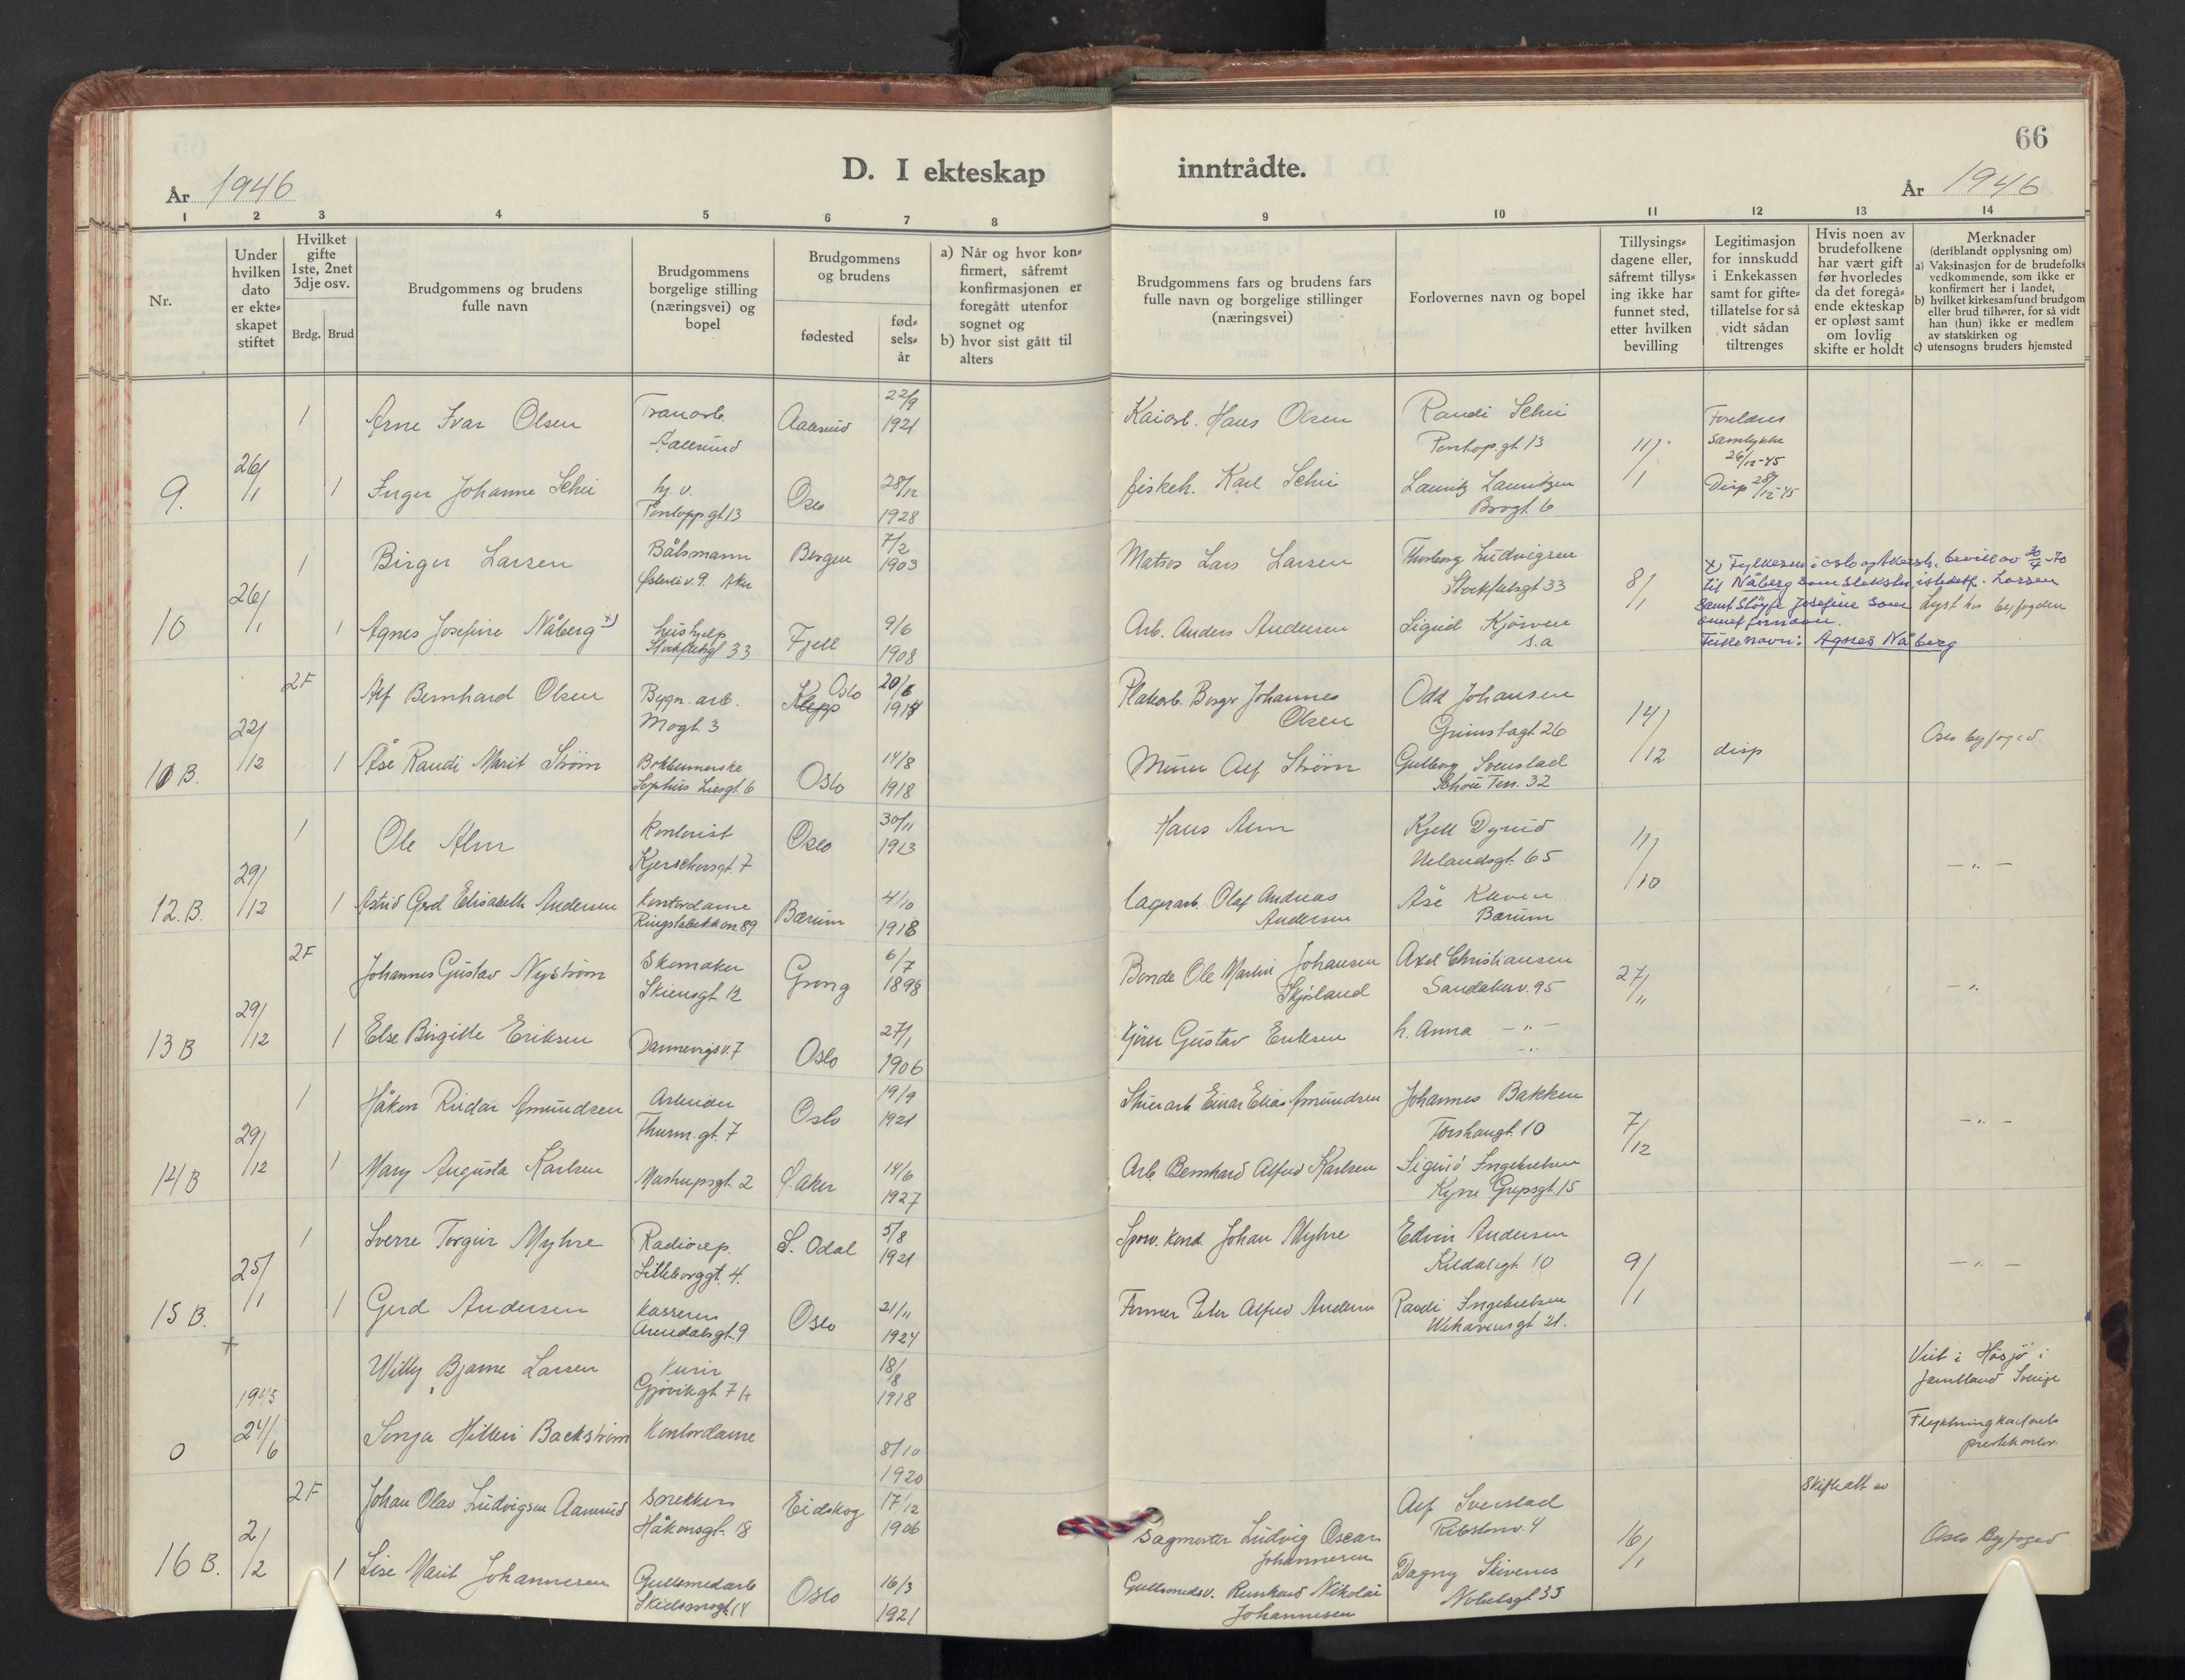 66
D. I ekteskap inntrådte.
År 1946
År 1946
1 2 3 4 5 6 7 8 9 10 11 12 13 14
Nr.
Under hvilken dato er ekteskapet stiftet
Hvilket gifte 1ste, 2net 3dje osv.
Brdg. Brud
Brudgommens og brudens fulle navn
Brudgommens borgelige stilling (næringsvei) og bopel
Brudgommens og brudens
fødested
fødselsår
a) Når og hvor konfirmert, såfremt konfirmasjonen er foregått utenfor sognet og
b) hvor sist gått til alters
Brudgommens fars og brudens fars fulle navn og borgelige stillinger (næringsvei)
Forlovernes navn og bopel
Tillysingsdagene eller, såfremt tillysing ikke har funnet sted, etter hvilken bevilling
Legitimasjon for innskudd i Enkekassen samt for giftetillatelse for så vidt sådan tiltrenges
Hvis noen av brudefolkene har vært gift før hvorledes da det foregående ekteskap er opløst samt om lovlig skifte er holdt
Merknader
(deriblandt opplysning om)
a) Vaksinasjon for de brudefolks vedkommende, som ikke er konfirmert her i landet,
b) hvilket kirkesamfund brudgom eller brud tilhører, for så vidt han (hun) ikke er medlem av statskirken og
c) utensogns bruders hjemsted
9. 26/1
1 Arne Ivar Olsen Tranarb. Aalesund Aalesund 22/9 1921 Kaiarb. Hans Olsen Randi Schei 11/1 Foreldres samtykke 26/12-45
1 Inger Johanne Schei hj. v. Oslo 28/12 1928 fiskeh. Karl Schei Lauritz Lauritzen Brogt. 6 Disp 28/12-45
10 26/1
1 Birger Larsen Båtsmann Østerliv. 9. Aker Bergen 7/2 1903 Matros Lars Larsen Thorborg Ludvigsen 8/1
1 Agnes Josefine Nåberg x) hushjelp 33 Fjell 9/6 1908 Arb. Anders Andersen Sigrid s.a
x) Fylkesm. i Oslo og Akersh. bevill av 30/4-70
til Nåberg som slektsn. istedetf. Larsen
samt sløyfe Josefine som Lyst hos byfogden
annet fornavn.
Fulle navn: Agnes Nåberg
10 B. 22/12
2F Alf Bernhard Olsen Bygn. arb. Mogt. 3 Oslo 20/6 Johannes Olsen Odd Johansen Grimstagt 26 14/12 disp Oslo byfoged
1 Åse Randi Marit Strøm Sophus Liesgt. 6 Oslo 14/8 1918 Murer Alf Strøm Svenstad 32
12. B. 29/12
1 Ole Alm Kontorist 7 Oslo 30/11 1913 Hans Alm Kjell Uelandsgt. 65 11/10 — " —
1 Astrid Gerd Elisabeth Andersen Kontordame 89 Bærum 4/10 1918 lagerarb. Olaf Andreas Andersen Åse Bærum
13 B 29/12
2F Johannes Gustav Nystrøm Skomaker Skiensgt. 12 Grong 6/7 1898 Bonde Ole Martin Johansen Skjørland Axel Christiansen Sandakerv. 95 27/11 — " —
1 Else Birgitte Eriksen Dannevigsv. 7 Oslo 27/1 1906 Kjører Gustav Eriksen h. Anna — " —
14 B 29/12
1 Håkon Reidar Amundsen Arbeider Thurm. gt. 7 Oslo 19/9 1921 Einar Elias Amundsen Johannes Bakken Torshaugt. 10 7/12 — " —
1 Mary Augusta Karlsen Mastrupsgt. 2 Ø. Aker 14/6 1927 Arb. Bernhard Alfred Karlsen Sigurd Ingebretsen Kyrre Grepsgt. 15
15 B. 25/1
1 Sverre Torgeir Myhre Radiorep. Lilleborggt. 4. S. Odal 5/8 1921 Sporv. kond. Johan Myhre Edvin Andersen 10 9/1 — " —
1 Gerd Andersen Kassererske Arendalsgt. 9 Oslo 21/11 1924 Former Peter Alfred Andersen Randi Ingebretsen 21.
0 1945 24/6
Willy Bjarne Larsen Kurir Gjøvikgt 7 18/8 1918 Viet i Håsjö i Jämtland Sverige
Sonja Backstrøm Kontordame 8/10 1920 Flyktning prestekontor.
16 B. 2/2
2F Johan Olav Ludvigsen Aamrud Håkonsgt. 18 Eidskog 17/12 1906 Sagmester Ludvig Oscar Johannesen Alf Sverstad 4 16/1 Skifteatt av Oslo Byfoged
1 Lise Marit Johannesen Gullsmedarb. 14 Oslo 16/3 1921 Gullsmedsv. Nikolai Johannesen Dagny Nobelsgt 35